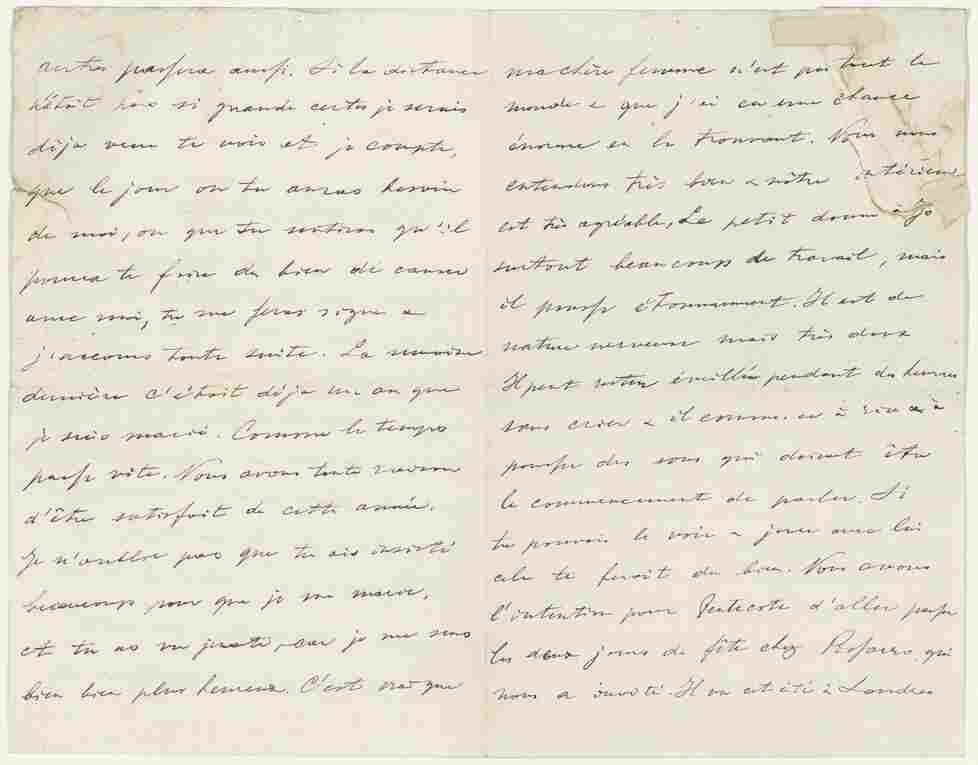 autres passera aussi. Si la distance
n'était pas si grande certes je serais
déja venu te voir et je compte,
que le jour ou tu auras besoin
de moi, ou que tu sentiras qu'il
pourra te faire du bien de causer
avec moi, tu me feras signe &
j'accours toute suite. La semaine
dernière c'était déja un an que
je suis marié. Comme le temps
passe vite. Nous avons toute raison
d'être satisfait de cette année.
Je n'oublie pas que tu as insisté
beaucoup pour que je me marie,
et tu as vu juste, car je me sens
bien bien plus heureux. C'est vrai que
ma chère femme n'est pas tout le
monde & que j'ai eu une chance
énorme en la trouvant. Nous nous
entendons très bien & nôtre intérieur
est très agréable, Le petit donne à Jo
surtout beaucoup de travail, mais
il pousse étonnament. Il est de
nature nerveux mais très doux
Il peut rester éveillé pendant des heures
sans crier & il commence à rire & à
pousser des sons qui doivent être
le commencement de parler. Si
tu pouvais le voir & jouer avec lui
cela te ferait du bien. Nous avons
l'intention pour Pentecote d'aller passer
les deux jours de fête chez Pissarro qui
nous a invité. Il va cet été à Londres